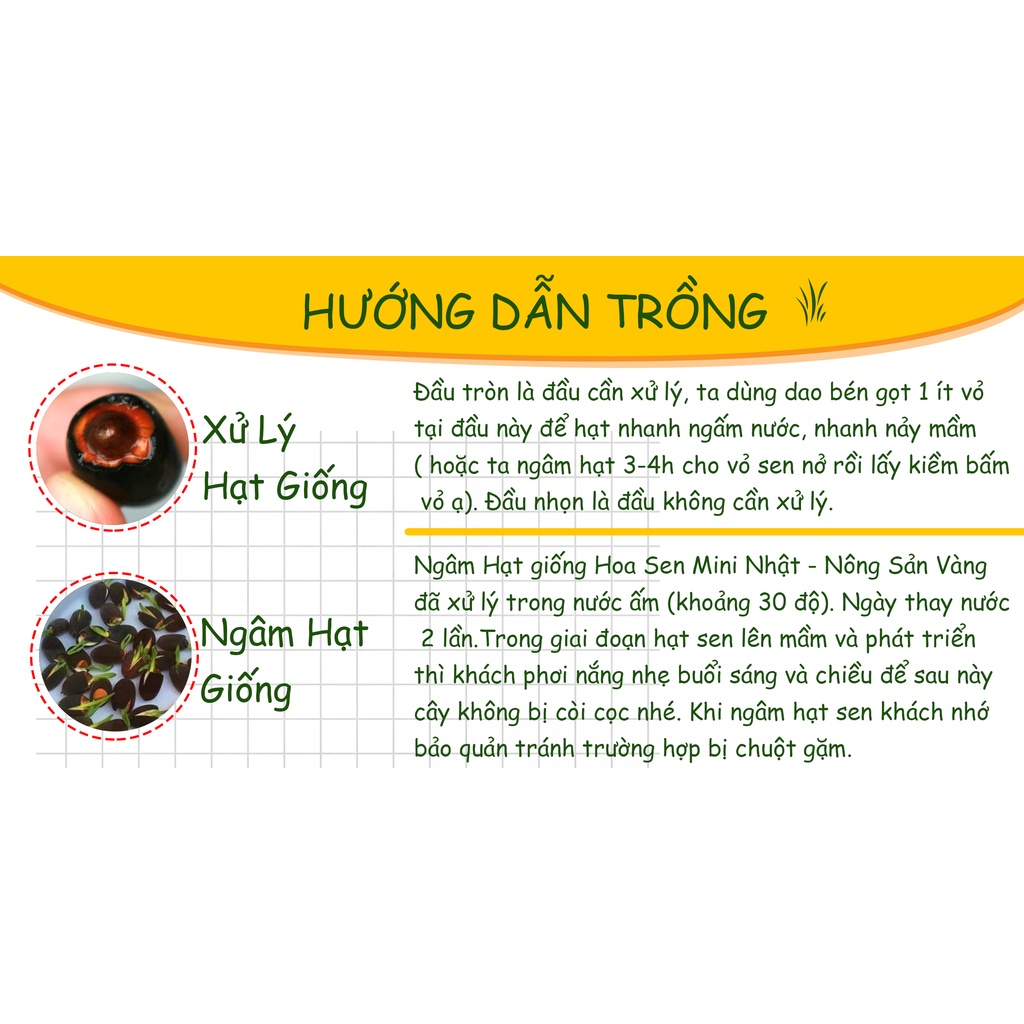 HƯỚNG DẪN TRỒNG
Xử Lý
Hạt Giống
Đầu tròn là đầu cần xử lý, ta dùng dao bén gọt 1 ít vỏ
tại đầu này để hạt nhanh ngấm nước, nhanh nảy mầm
( hoặc ta ngâm hạt 3-4h cho vỏ sen nở rồi lấy kiềm bấm
vỏ ạ). Đầu nhọn là đầu không cần xử lý.
Ngâm Hạt
Giống
Ngâm Hạt giống Hoa Sen Mini Nhật - Nông Sản Vàng
đã xử lý trong nước ấm (khoảng 30 độ). Ngày thay nước
2 lần.Trong giai đoạn hạt sen lên mầm và phát triển
thì khách phơi nắng nhẹ buổi sáng và chiều để sau này
cây không bị còi cọc nhé. Khi ngâm hạt sen khách nhớ
bảo quản tránh trường hợp bị chuột gặm.